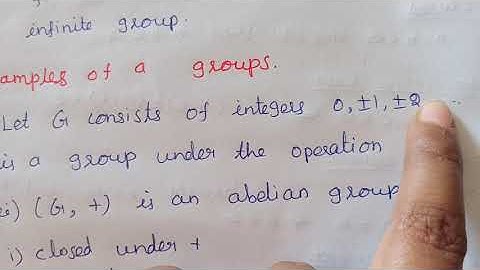 infinite group.
amples of a groups.
Let G consists of integers 0, ±1, ±2 ...
is a group under the operation
(G, +) is an abelian group
i) closed under +